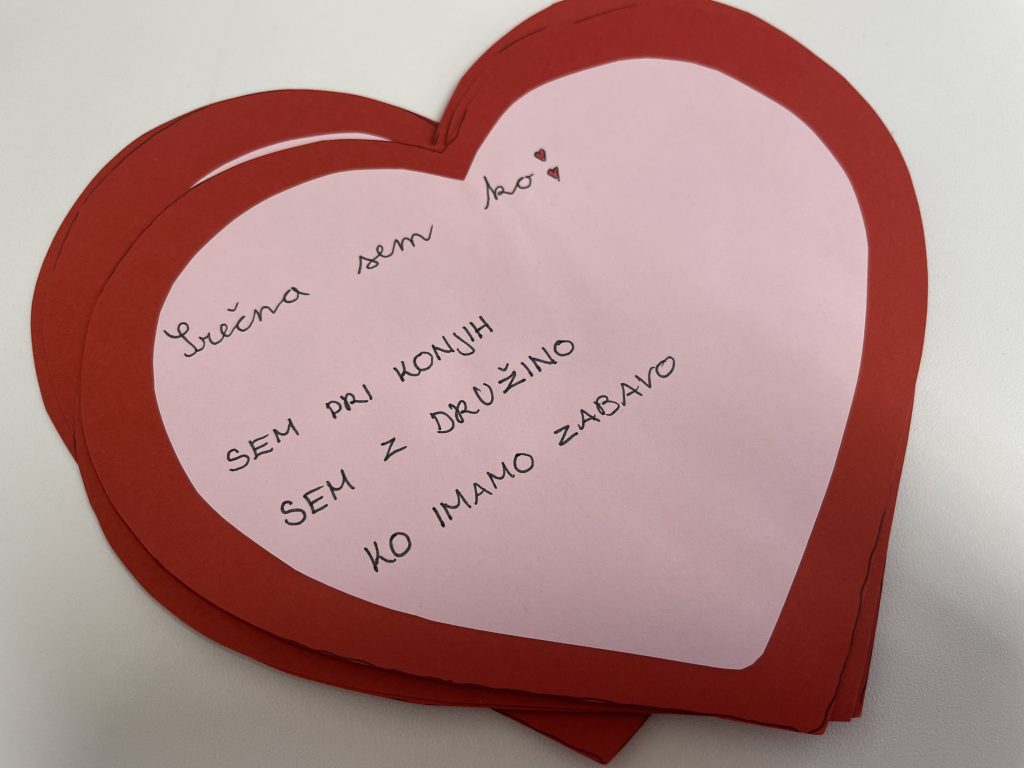 Srečna sem ko:
SEM PRI KONJIH
SEM Z DRUŽINO
KO IMAMO ZABAVO